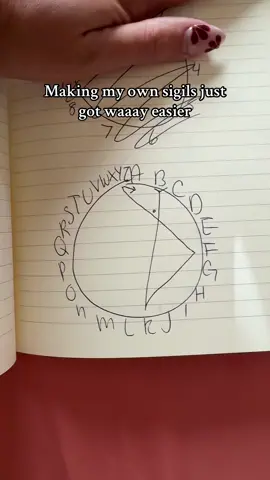 4
8
7
6
Making my own sigils just
got waaay easier
A B C D E F G H I J K L M N O P Q R S T U V W X Y Z